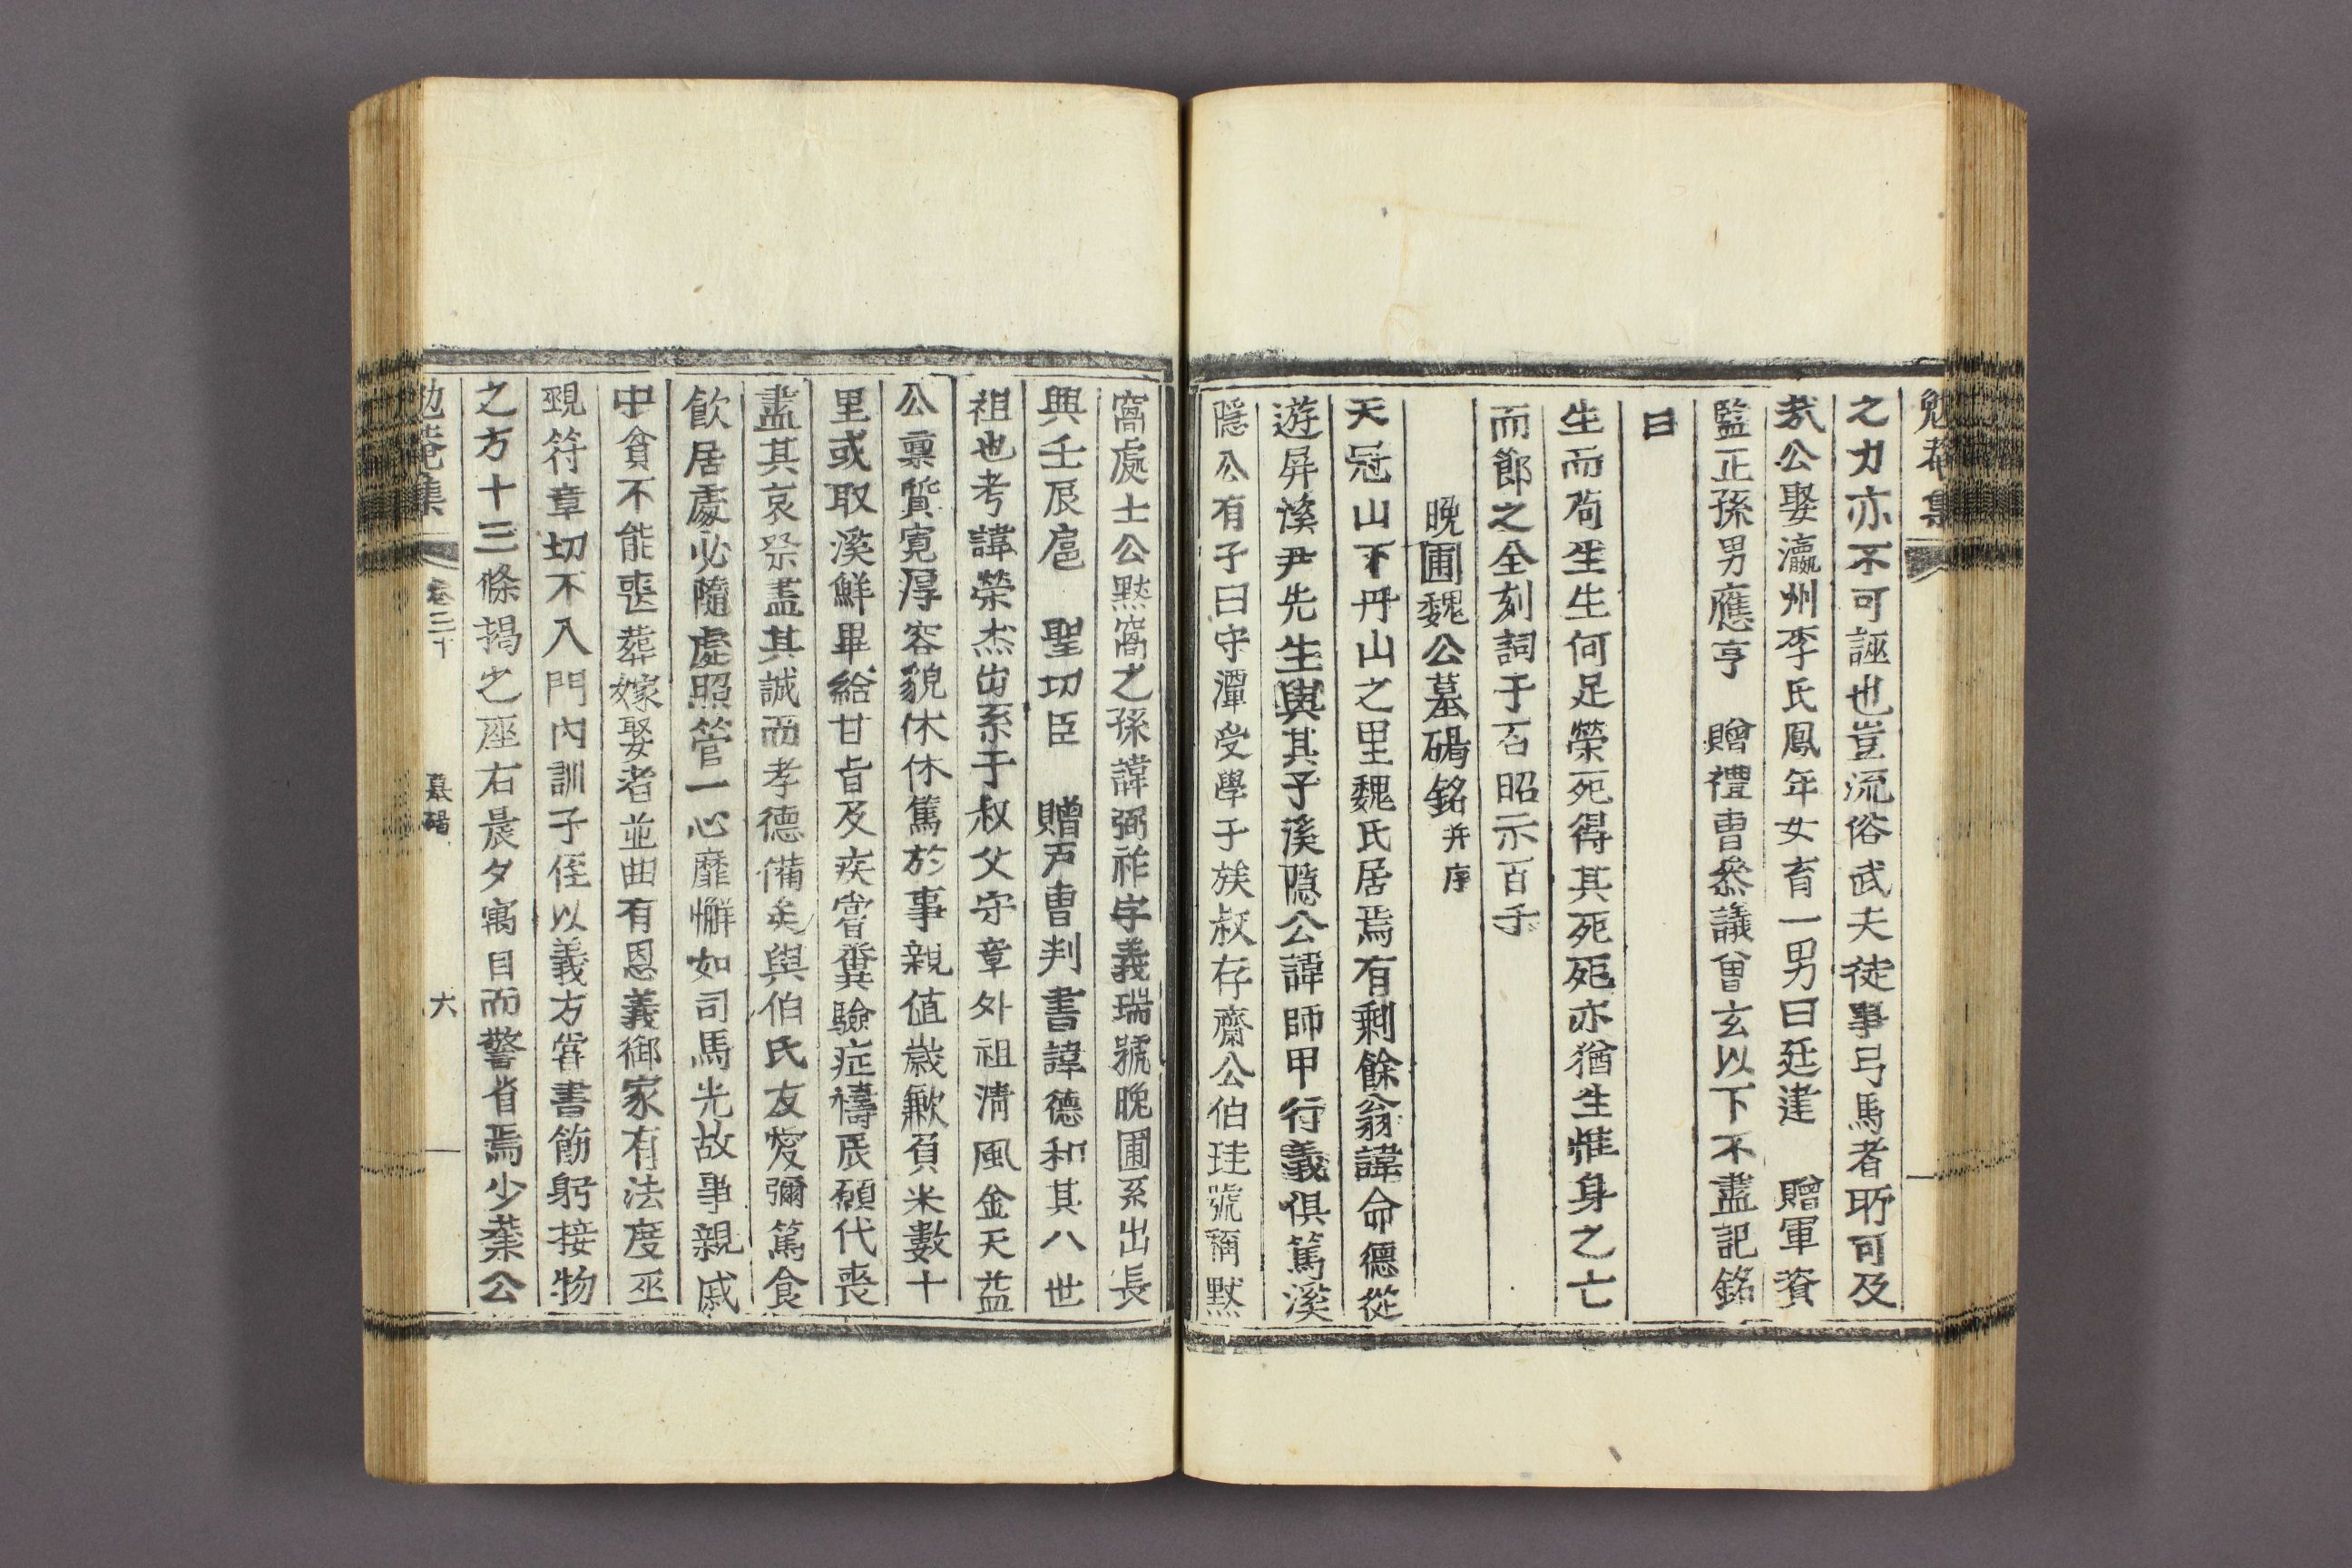 勉菴集
之力亦不可誣也豈流俗武夫徒事弓馬者所可及
哉公娶瀛州李氏鳳年女育一男曰廷建 贈軍資
監正孫男應亨 贈禮曹叅議曾玄以下不盡記銘
曰
生而苟生生何足榮死得其死死亦猶生惟身之亡
而節之全刻詞于石昭示百千
晩圃魏公墓碣銘 幷序
天冠山下丹山之里魏氏居焉有剩餘翁諱命德從
遊屛溪尹先生與其子溪隱公諱師甲行義俱篤溪
隱公有子曰守潭受學于族叔存齋公伯珪號稱默
窩處士公默窩之孫諱弼祚字義瑞號晩圃系出長
興壬辰扈 聖切臣 贈戶曹判書諱德和其八世
祖也考諱榮杰出系于叔父守章外祖淸風金天益
公稟質寬厚容貌休休篤於事親値歲歉負米數十
里或取溪鮮畢給甘旨及疾嘗糞驗症禱辰願代喪
盡其哀祭盡其誠而孝德備矣與伯氏友愛彌篤食
飮居處必隨處照管一心靡懈如司馬光故事親戚
中貧不能喪葬嫁娶者並曲有恩義御家有法度巫
覡符章切不入門內訓子侄以義方嘗書飭躬接物
之方十三條揭之座右晨夕寓目而警省焉少業公
勉菴集 卷三十 墓碣 六